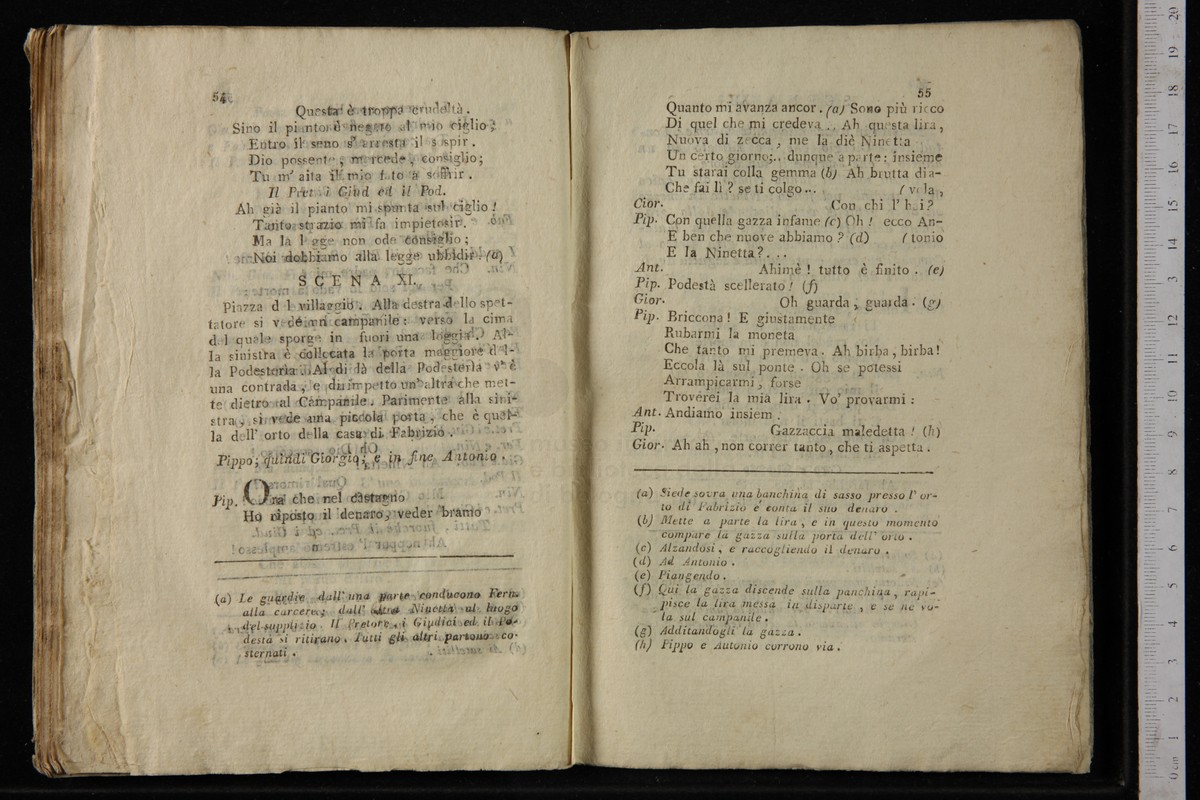 54
Questa è troppa crudeltà.
Sino il pianto è negato al mio ciglio;
Entro il seno s' arresta il sospir.
Dio possente, mercede, consiglio;
Tu m' aita il mio fato a soffrir.
Il Pret. i Giud ed il Pod.
Ah già il pianto mi spunta sul ciglio!
Tanto strazio mi fa impietosir.
Ma la legge non ode consiglio;
Noi dobbiamo alla legge ubbidir. (a)
SCENA XI.
Piazza del villaggio. Alla destra dello spet-
tatore si vede un campanile: verso la cima
del quale sporge in fuori una loggia. Al-
la sinistra è collocata la porta maggiore del-
la Podesteria. Al di là della Podesteria v' è
una contrada, e dirimpetto un' altra che met-
te dietro al Campanile. Parimente alla sini-
stra, si vede una piccola porta, che è quel-
la dell' orto della casa di Fabrizio.
Pippo, quindi Giorgio, e in fine Antonio.
Pip. Ora che nel castagno
Ho riposto il denaro, veder bramo
(a) Le guardie dall' una parte conducono Fern.
alla carcere; dall' altra Ninetta al luogo
del supplizio. Il Pretore, i Giudici ed il Po-
destà si ritirano. Tutti gli altri partono co-
sternati.
55
Quanto mi avanza ancor. (a) Sono più ricco
Di quel che mi credeva.. Ah questa lira,
Nuova di zecca, me la diè Ninetta
Un certo giorno;.. dunque a parte; insieme
Tu starai colla gemma (b) Ah brutta dia-
Che fai lì? se ti colgo... ( vola,
Gior. Con chi l' hai?
Pip. Con quella gazza infame (c) Oh! ecco An-
E ben che nuove abbiamo? (d) ( tonio
E la Ninetta?...
Ant. Ahimè! tutto è finito. (e)
Pip. Podestà scellerato! (f)
Gior. Oh guarda, guarda. (g)
Pip. Briccona! E giustamente
Rubarmi la moneta
Che tanto mi premeva. Ah birba, birba!
Eccola là sul ponte. Oh se potessi
Arrampicarmi, forse
Troverei la mia lira. Vo' provarmi:
Ant. Andiamo insiem.
Pip. Gazzaccia maledetta! (h)
Gior. Ah ah, non correr tanto, che ti aspetta.
(a) Siede sovra una banchina di sasso presso l' or-
to di Fabrizio e conta il suo denaro.
(b) Mette a parte la lira, e in questo momento
compare la gazza sulla porta dell' orto.
(c) Alzandosi, e raccogliendo il denaro.
(d) Ad Antonio.
(e) Piangendo.
(f) Qui la gazza discende sulla panchina, rapi-
pisce la lira messa in disparte, e se ne vo-
la sul campanile.
(g) Additandogli la gazza.
(h) Pippo e Antonio corrono via.
0 cm 1 2 3 4 5 6 7 8 9 10 11 12 13 14 15 16 17 18 19 20